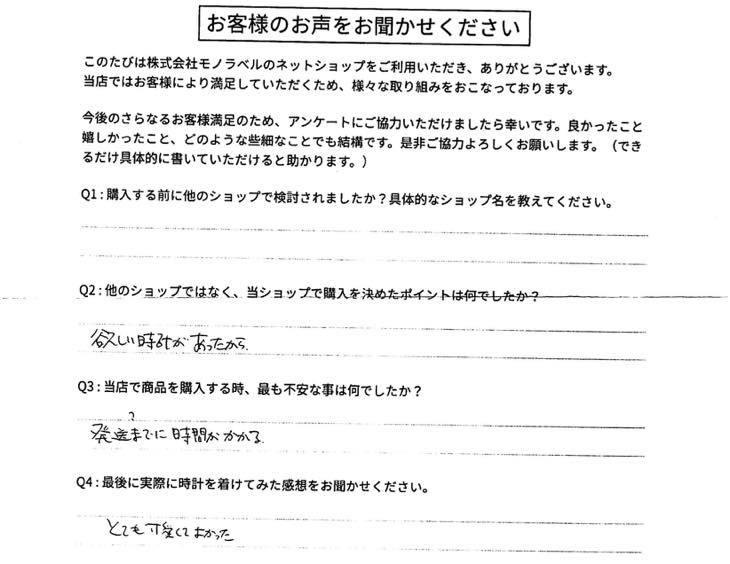 お客様のお声をお聞かせください
このたびは株式会社モノラベルのネットショップをご利用いただき、ありがとうございます。
当店ではお客様により満足していただくため、様々な取り組みをおこなっております。
今後のさらなるお客様満足のため、アンケートにご協力いただけましたら幸いです。良かったこと
嬉しかったこと、どのような些細なことでも結構です。是非ご協力よろしくお願いします。（でき
るだけ具体的に書いていただけると助かります。）
Q1:購入する前に他のショップで検討されましたか？具体的なショップ名を教えてください。
Q2:他のショップではなく、当ショップで購入を決めたポイントは何でしたか？
欲しい時計があったから。
Q3:当店で商品を購入する時、最も不安な事は何でしたか？
発送までに時間がかかる。
Q4:最後に実際に時計を着けてみた感想をお聞かせください。
とても可愛くてよかった